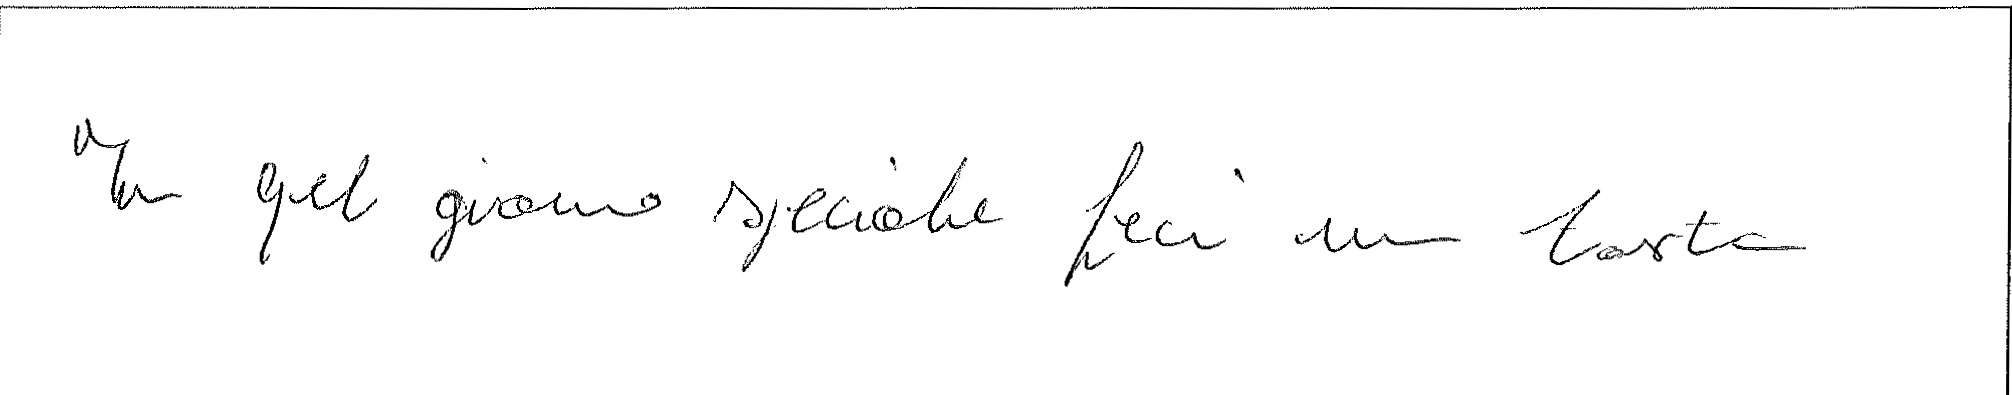 In quel giorno speciale feci un tosta